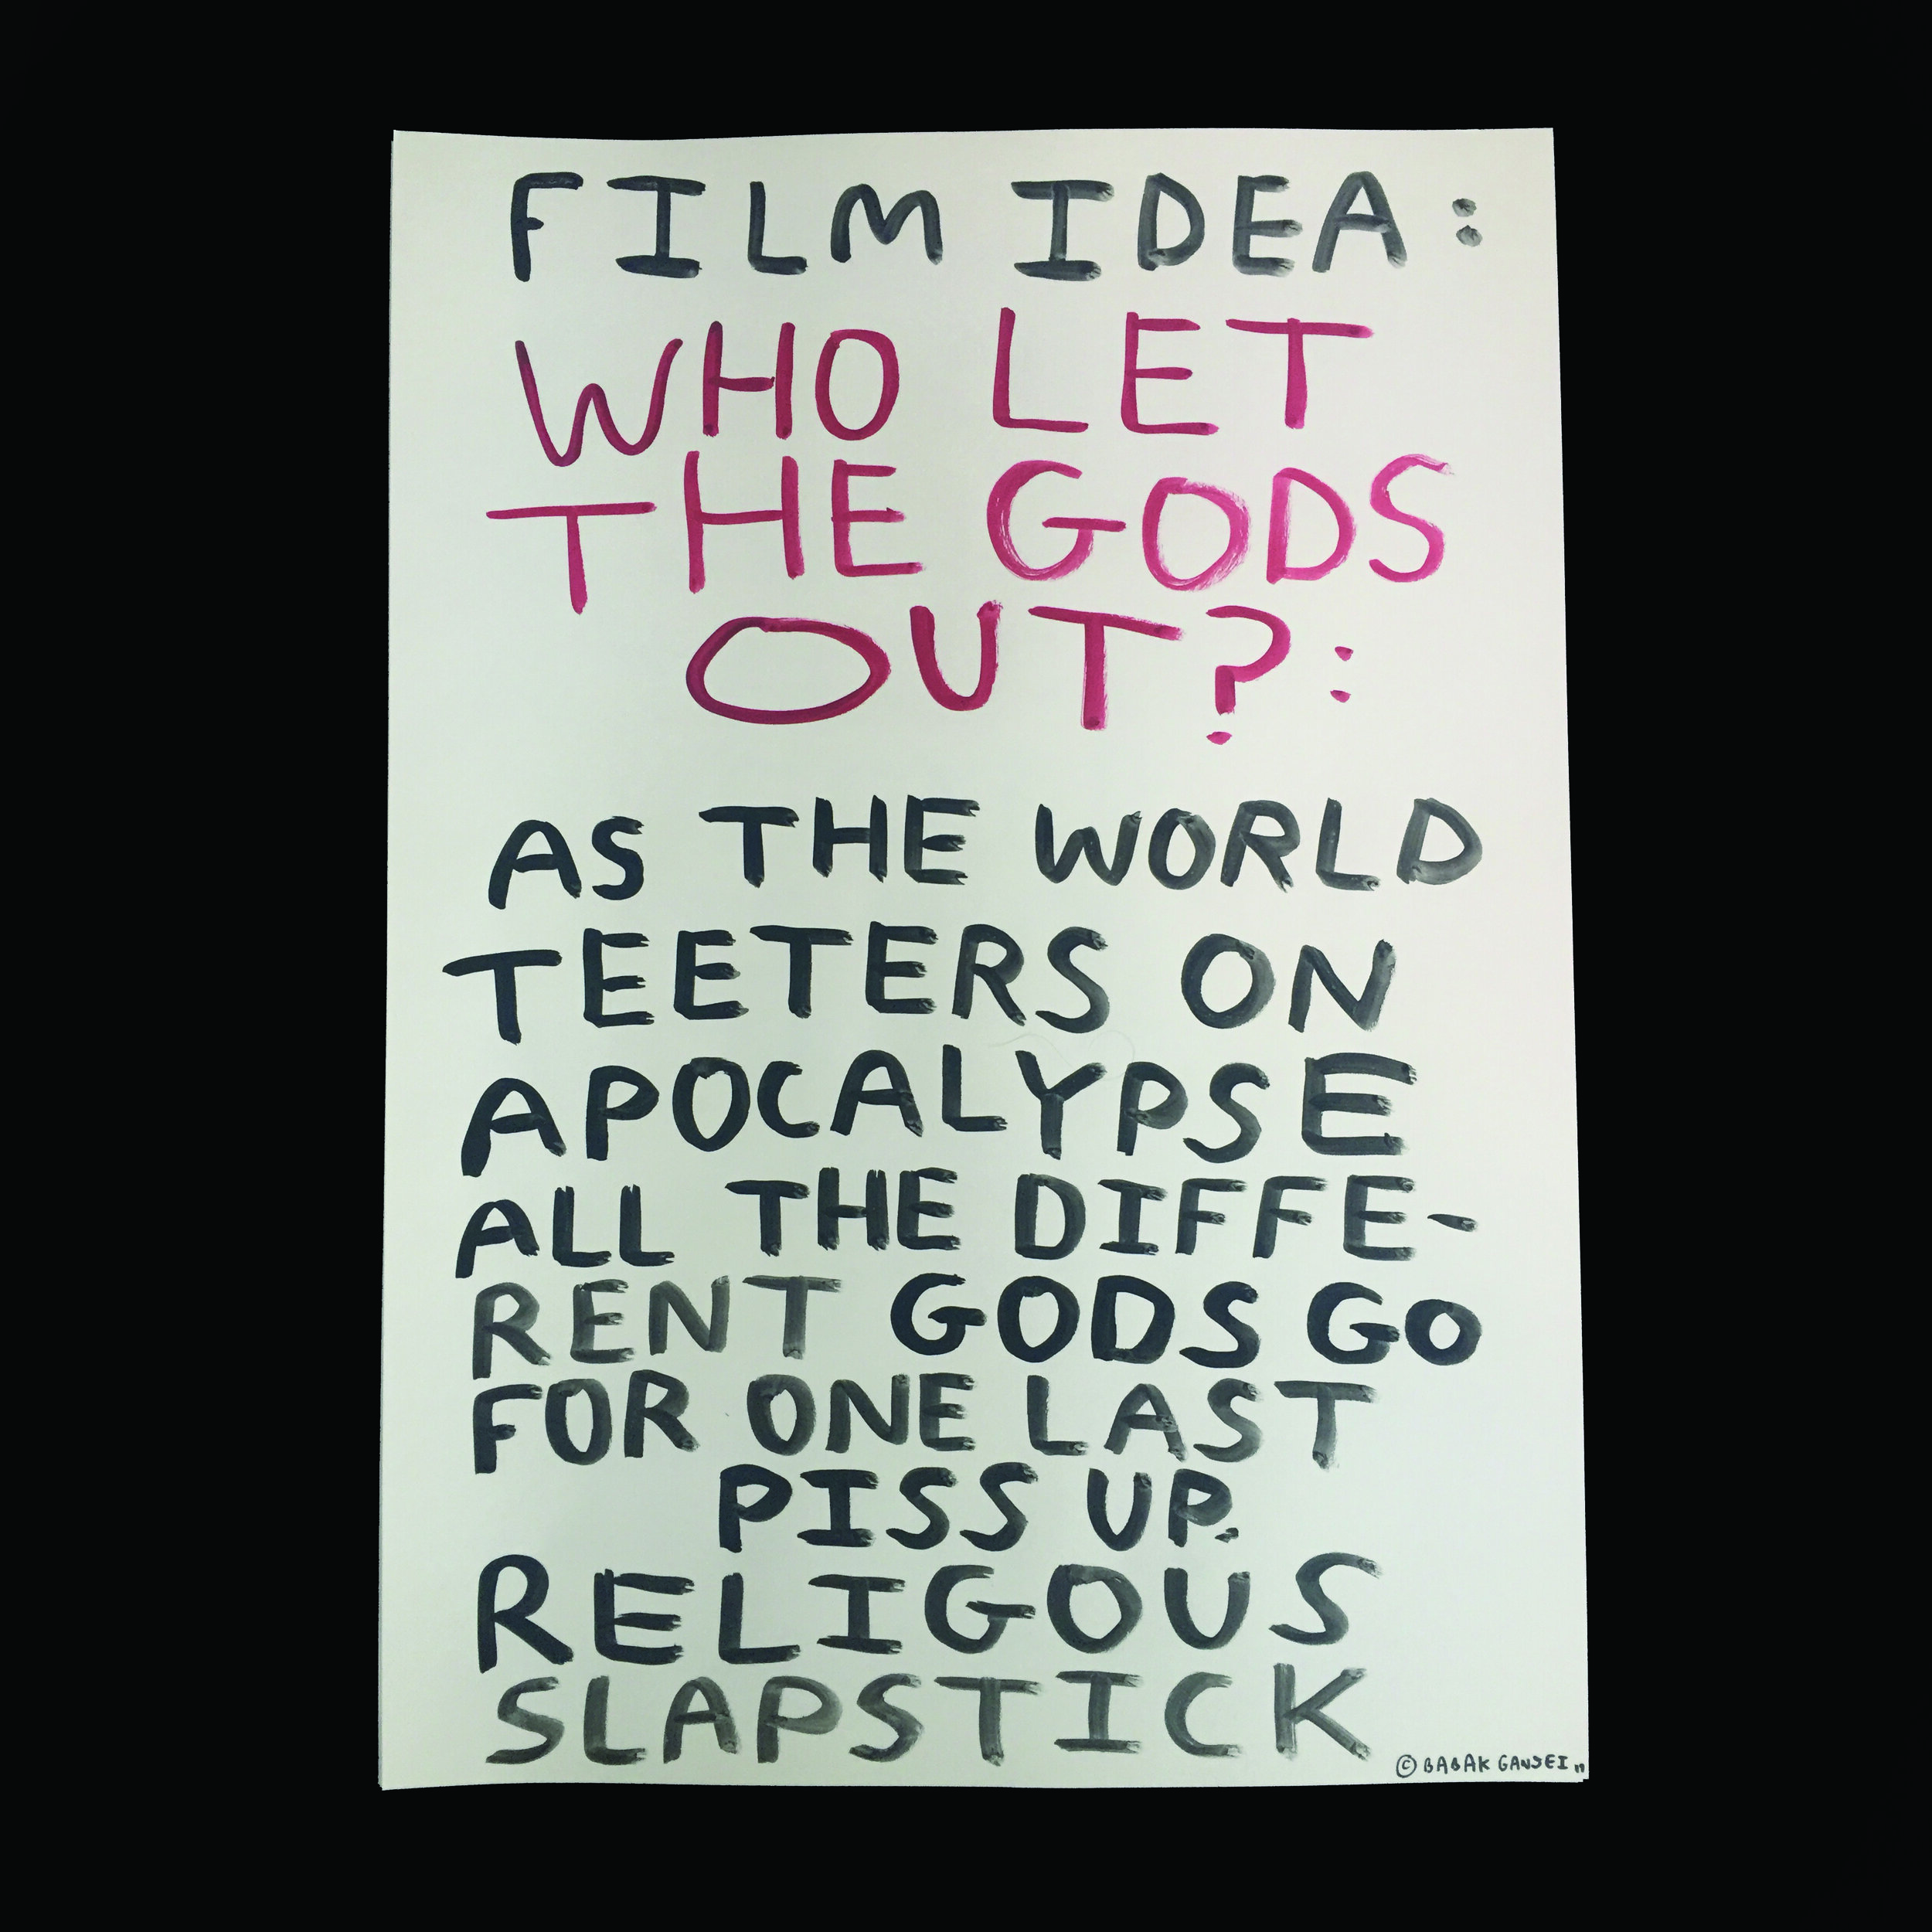 FILM IDEA:
WHO LET
THE GODS
OUT?:
AS THE WORLD
TEETERS ON
APOCALYPSE
ALL THE DIFFE-
RENT GODS GO
FOR ONE LAST
PISS UP.
RELIGOUS
SLAPSTICK
© BABAK GANJEI